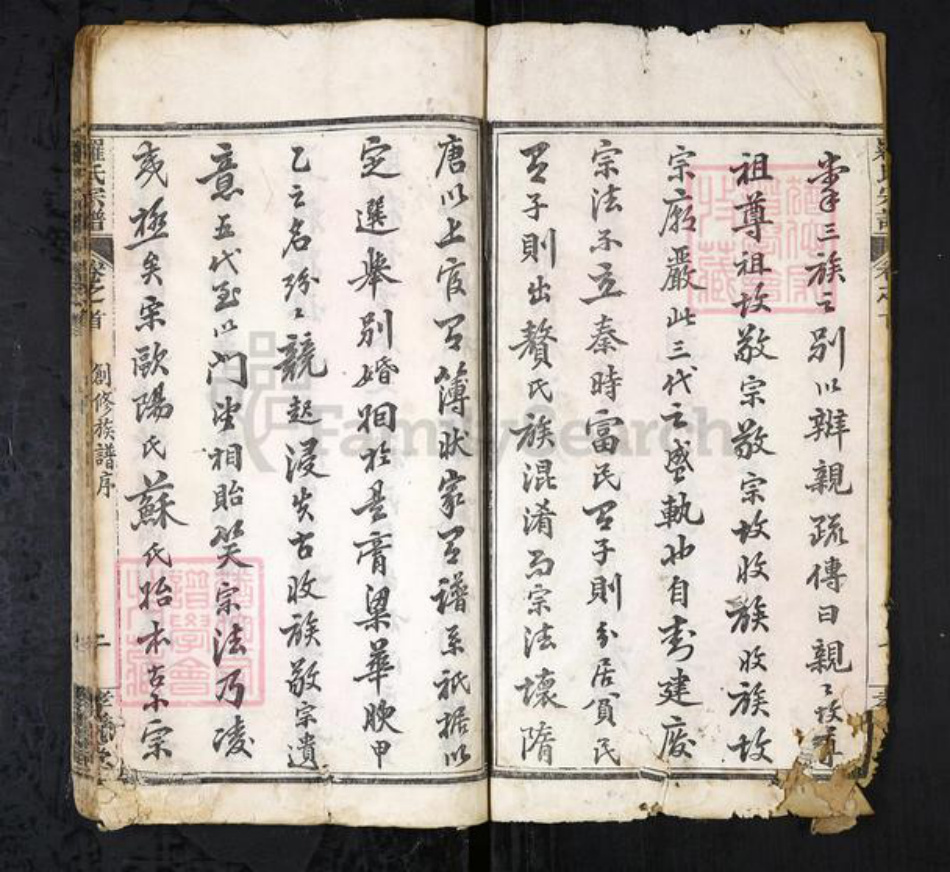 掌三族之別以辨親疏傳曰親親故尊
祖尊祖故敬宗敬宗故收族收族故
宗廟嚴此三代之盛軌也自封建廢
宗法不立秦時富民有子則分居貧民
有子則出贅氏族混淆而宗法壞隋
唐以上官有薄狀家有譜系祇据以
定選舉別婚姻於是膏粱華腴甲
乙之名紛紛競起浸失古收族敬宗遺
意五代至以門望相貽笑宗法乃凌
夷極矣宋歐陽氏蘇氏始本古小宗
羅氏宗譜
卷之首
創修族譜序
二
FamilySearch